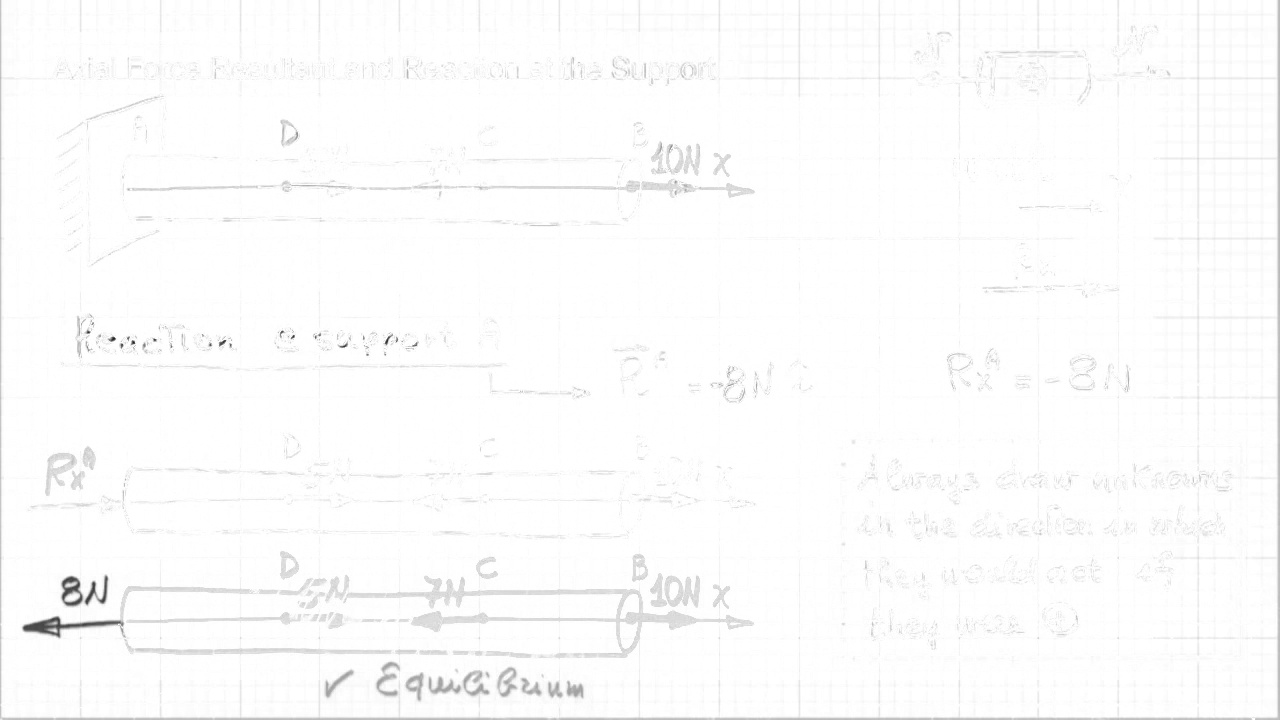 Axial Force Resultant and Reaction at the Support
N N
A D C B
5N 7N 10N x
Reaction @ support A
= -8N
Rx^A = -8N
D C B
Rx^A 5N 10N x
Always draw unknowns
in the direction in which
they would act if
they were ⊕
D C B
8N 5N 7N 10N x
✓ Equilibrium